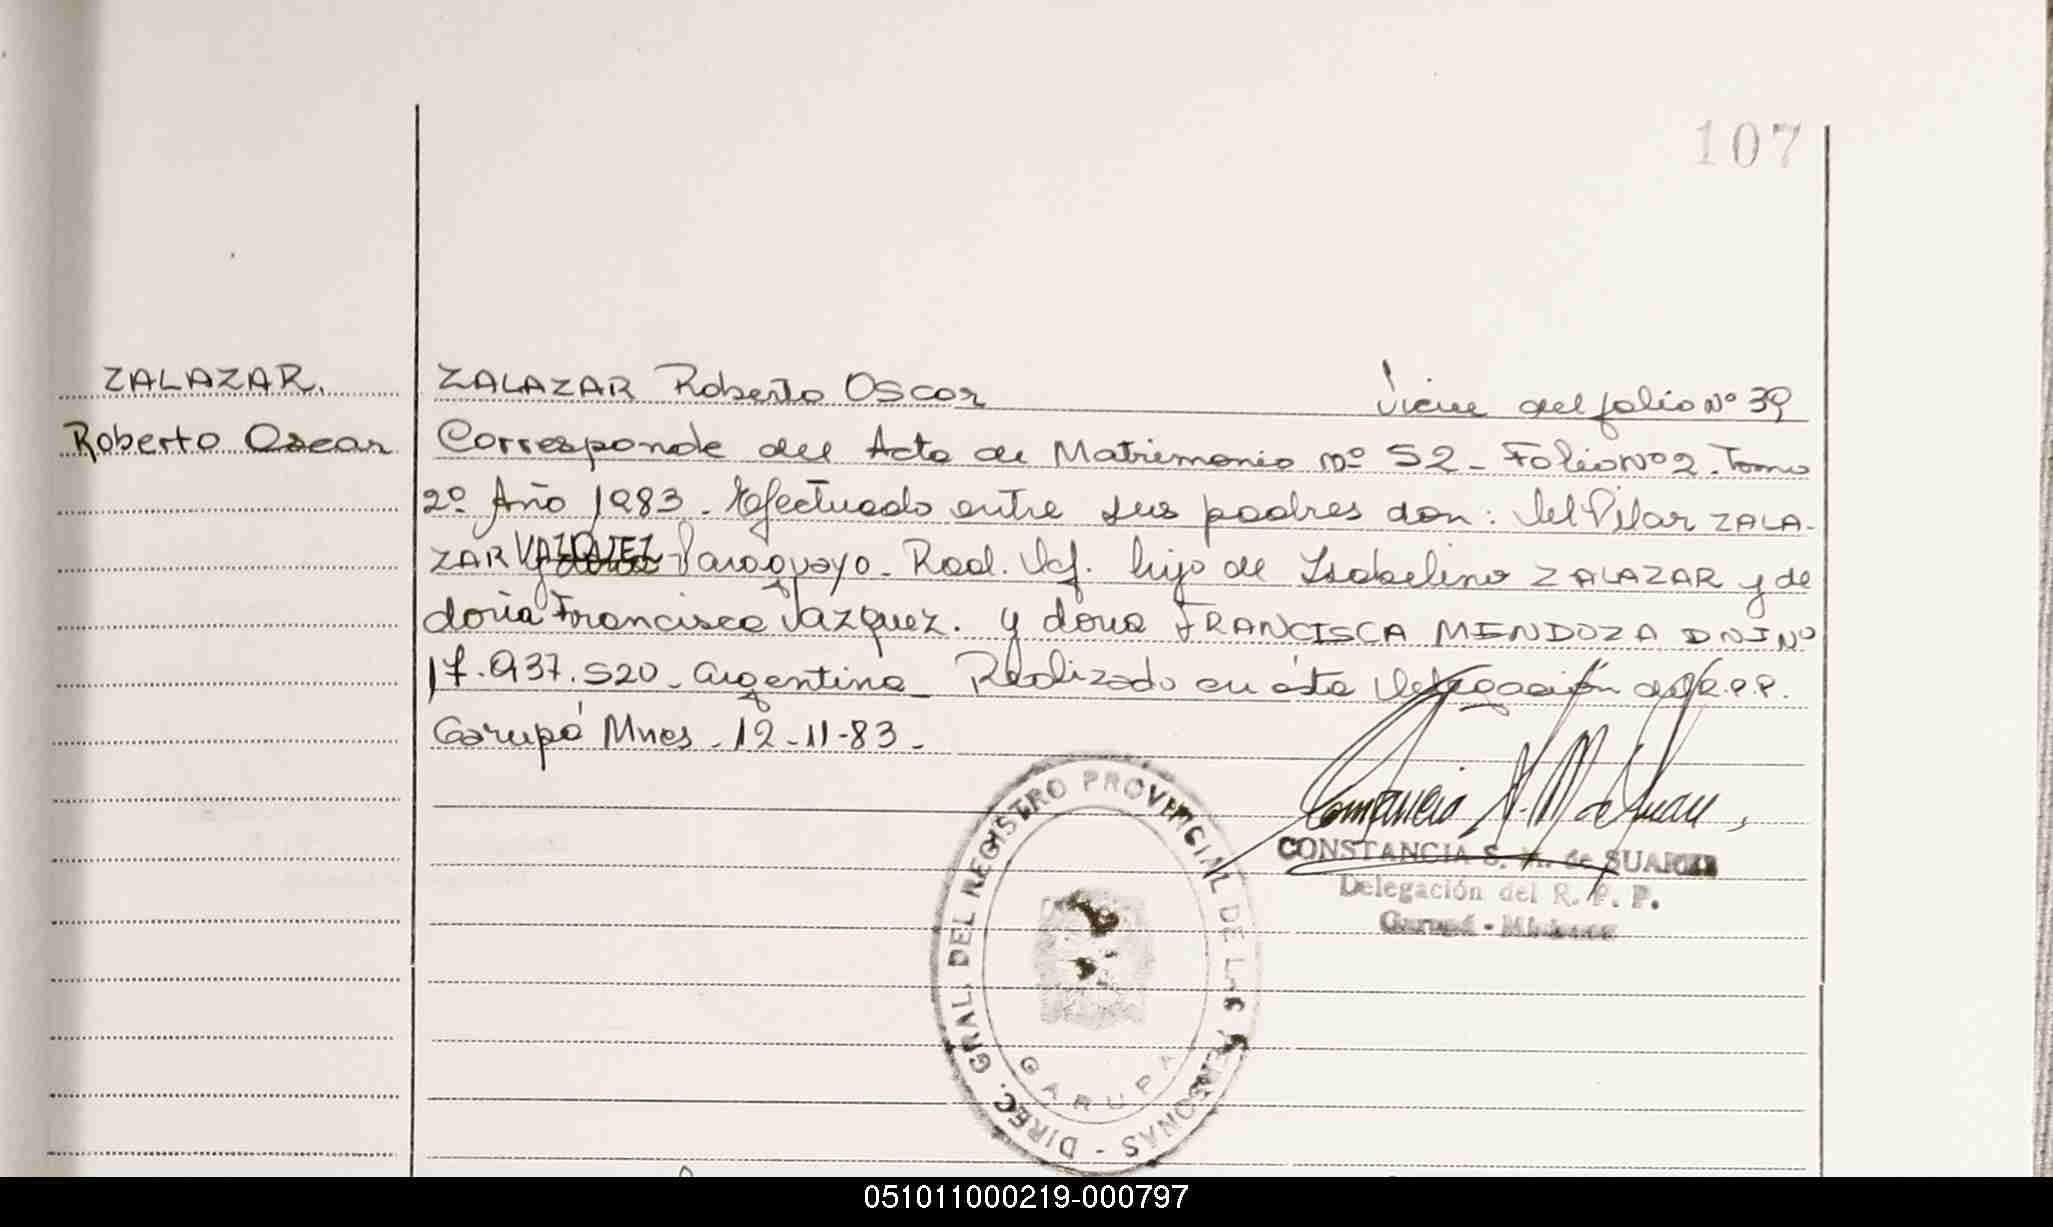 107
ZALAZAR.
Roberto Oscar
ZALAZAR Roberto Oscar Viene del folio Nº 39
Corresponde del Acta de Matrimonio nº 52 - Folio Nº 2. Tomo
2º Año 1983. Efectuado entre sus padres don: del Pilar ZALA-
ZAR VAZQUEZ Paraguayo. Rad. Def. hijo de Isabelino ZALAZAR y de
doña Francisca Vazquez. y doña FRANCISCA MENDOZA DNI Nº
17.937.520. Argentina Realizado en ésta Delegación del R.P.P.
Garupá Mnes. 12-11-83.
CONSTANCIA S. M. de SUAREZ
Delegación del R. P. P.
Garupá - Misiones
DIREC. GRAL. DEL REGISTRO PROVINCIAL DE LAS PERSONAS -
GARUPA
051011000219-000797